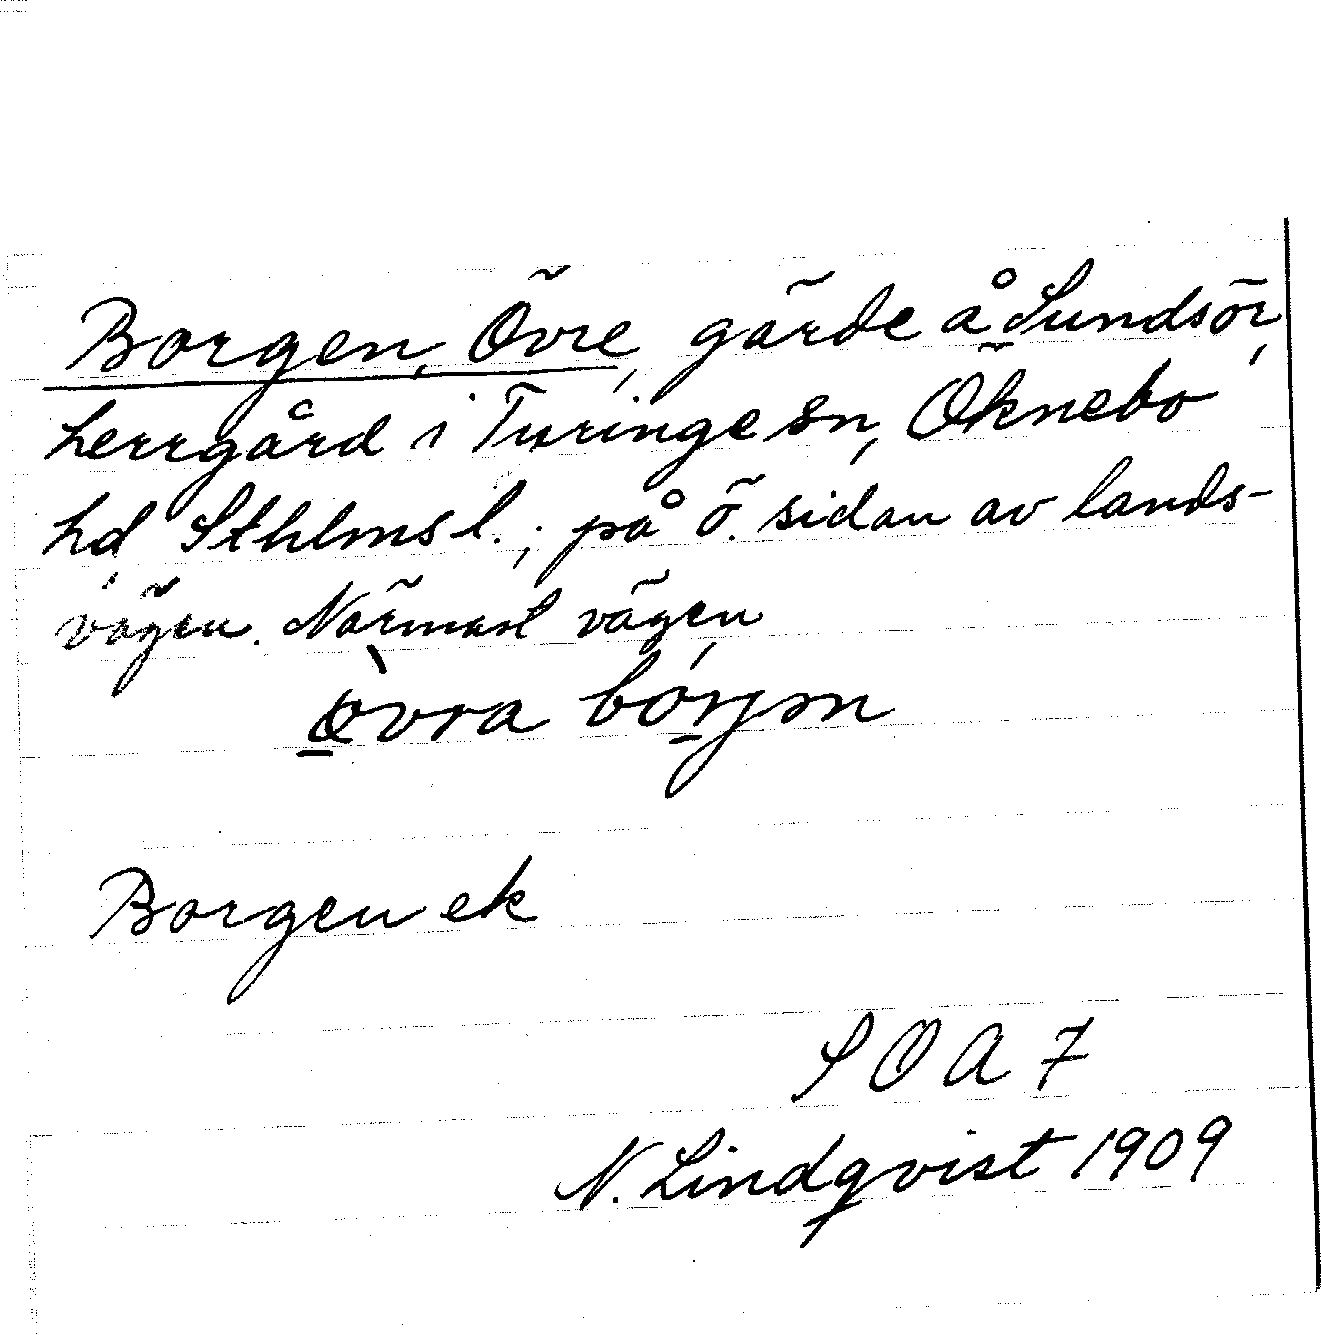 Borgen, Övre, gärde å Sundsör,
herrgård i Turinge sn, Öknebo
hd, Sthlms l.; på ö. sidan av lands-
vägen. Närmast vägen
Borgen ek
S O A 7
N. Lindqvist 1909